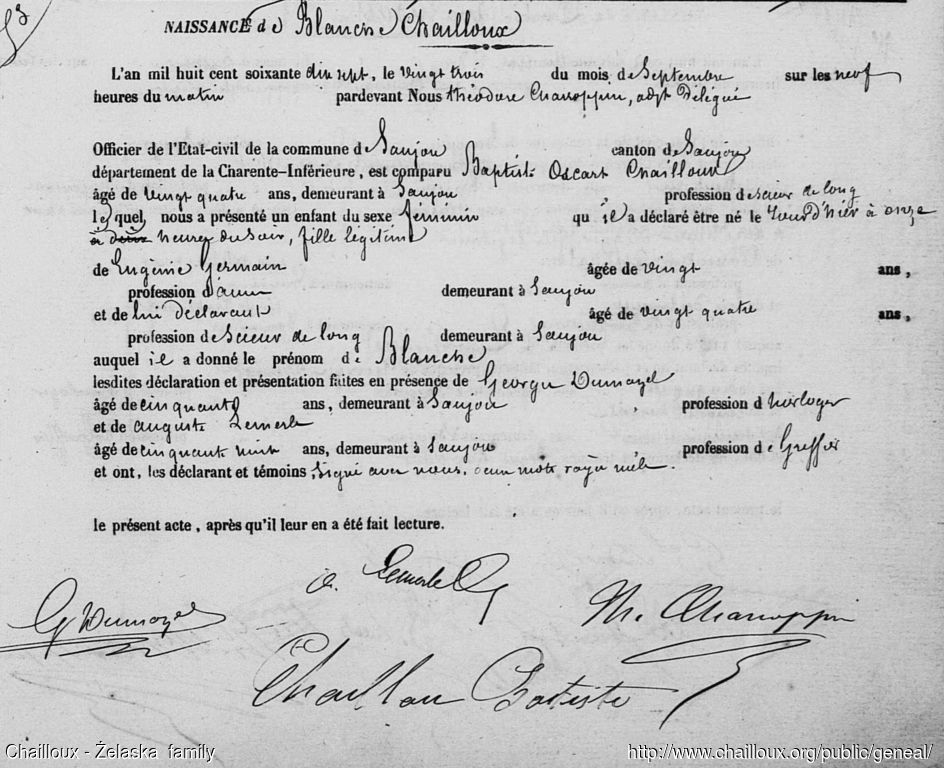 NAISSANCE de Blanche Chailloux
L'an mil huit cent soixante dix sept, le vingt trois du mois de Septembre sur les neuf
heures du matin pardevant Nous théodore Chanoppin, adjt Délégué
Officier de l'Etat-civil de la commune de Saujon canton de Saujon
département de la Charente-Inférieure, est comparu Baptiste Oscart Chailloux
âgé de vingt quatre ans, demeurant à Saujon profession de scieur de long
lequel nous a présenté un enfant du sexe féminin qu'il a déclaré être né le jour d'hier à onze
heures du soir, fille légitime
de Eugénie Germain âgée de vingt ans,
profession d demeurant à Saujon
et de lui déclarant âgé de vingt quatre ans,
profession de scieur de long demeurant à Saujon
auquel il a donné le prénom de Blanche
lesdites déclaration et présentation faites en présence de George Dumazel
âgé de cinquante ans, demeurant à Saujon, profession d horloger
et de auguste Lemerle
âgé de cinquante huit ans, demeurant à Saujon profession de Greffier
et ont, les déclarant et témoins signé avec nous. deux mots rayés nuls.
le présent acte, après qu'il leur en a été fait lecture.
a. Lemerle
G Dumazel
Th. Chanoppin
Chaillou Batiste
Chailloux - Żelaska family http://www.chailloux.org/public/geneal/